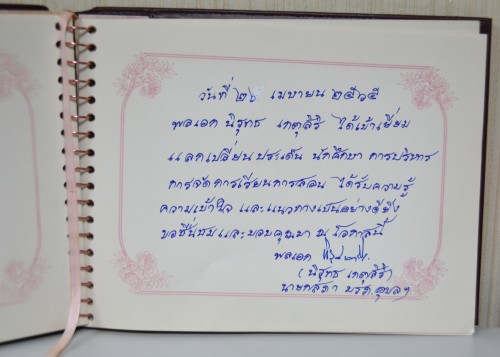 วันที่ ๒๖ เมษายน ๒๕๖๕
พลเอก นิรุทธ เกตุสิริ ได้เข้าเยี่ยม
แลกเปลี่ยนประเด็น นักศึกษา การบริหาร
การจัดการเรียนการสอน ได้รับความรู้
ความเข้าใจ และแนวทางเป็นอย่างดียิ่ง
ขอชื่นชม และขอบคุณมา ณ โอกาสนี้
พลเอก
(นิรุทธ เกตุสิริ)
นายกสภา มรภ.อุบลฯ